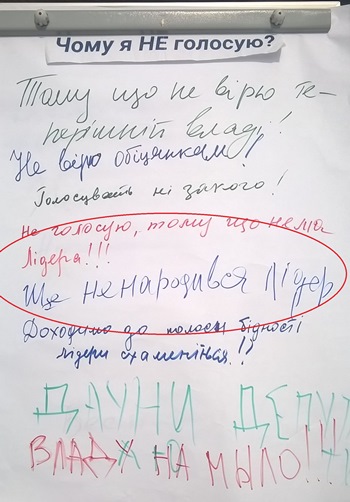 Чому я НЕ голосую?
Тому що не вірю те-
перішній владі!
Не вірю обіцянкам!
Голосувать ні за кого!
Не голосую, тому що нема
Лідера!!!
Ще не народився Лідер
Доходимо до полоси бідності
лідери схаменіться!!
ДАУНИ ДЕПУ
ВЛАДХ НА МЫЛО!!!